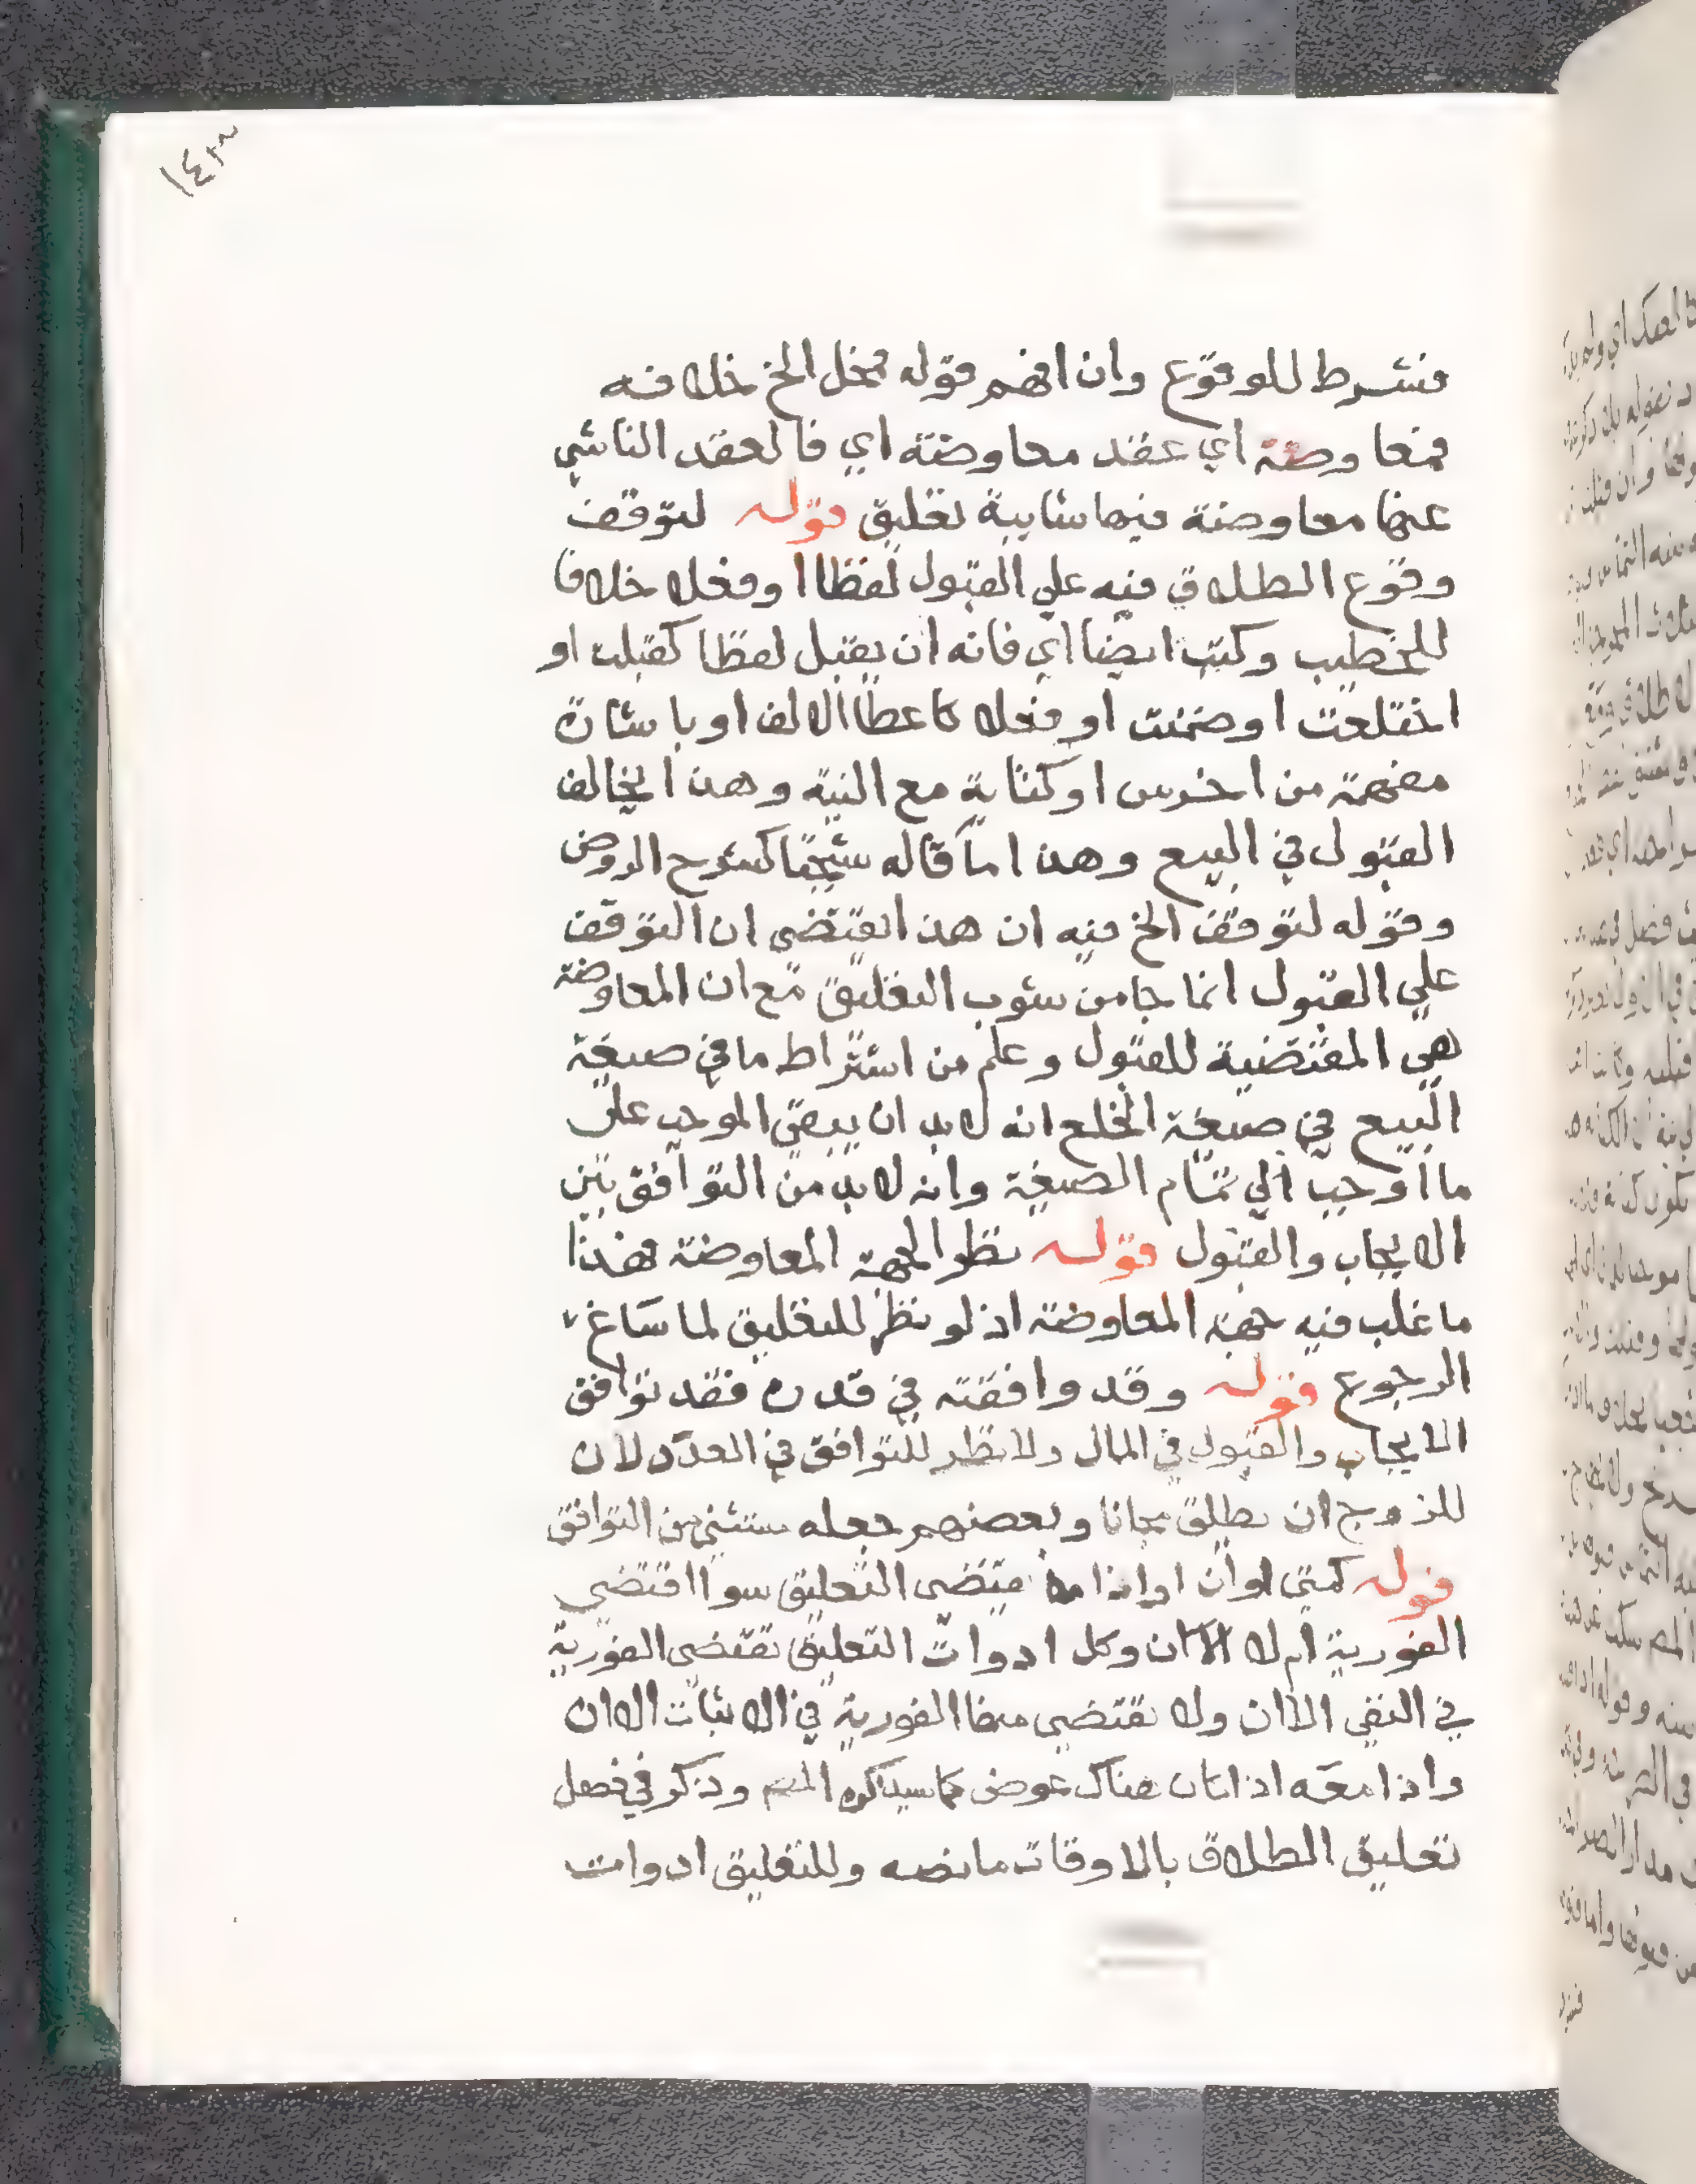 ١٤٣
فشرط للوقوع وان افهم قوله محل الخ خلافه
فمعاوضة اي عقد معاوضة اي فالعقد الناشي
عنها معاوضة فيها شايبة تعليق قوله لتوقف
وقوع الطلاق فيه علي القبول لفظا او فعلا خلافا
للخطيب وكتب ايضا اي فانه ان يقبل لفظا كقبلت او
اختلعت او ضمنت او فعلا كاعطا الالف او باشارة
مفهمة من اخرس او كناية مع النية وهذا يخالف
القبول في البيع وهذا ما قاله شيخنا كشرح الروض
وقوله لتوقف الخ فيه ان هذا يقتضي ان التوقف
علي القبول انما جا من شوب التعليق مع ان المعاوضة
هي المقتضية للقبول وعلم من اشتراط ما في صيغة
البيع في صيغة الخلع انه لا بد ان يبقي الموجب علي
ما اوجب الي تمام الصيغة وانه لا بد من التوافق بين
الايجاب والقبول قوله نظرا لجهة المعاوضة فهذا
ما غلب فيه جهة المعاوضة اذ لو نظر للتعليق لما ساغ
الرجوع قوله وقد وافقته في قدره فقد توافق
الايجاب والقبول في المال ولا نظر للتوافق في العدد لان
للزوج ان يطلق مجانا وبعضهم جعله مستثني من التوافق
قوله كمتي او ان او اذا مقتضي التعليق سوا اقتضي
الفورية ام لا لان وكل ادوات التعليق تقتضي الفورية
في النفي الا ان ولا تقتضي منها الفورية في الاثبات الا ان
واذا معه اذا كان هناك عوض كما سيذكره المص وذكر في فصل
تعليق الطلاق بالاوقات ما نصه وللتعليق ادوات